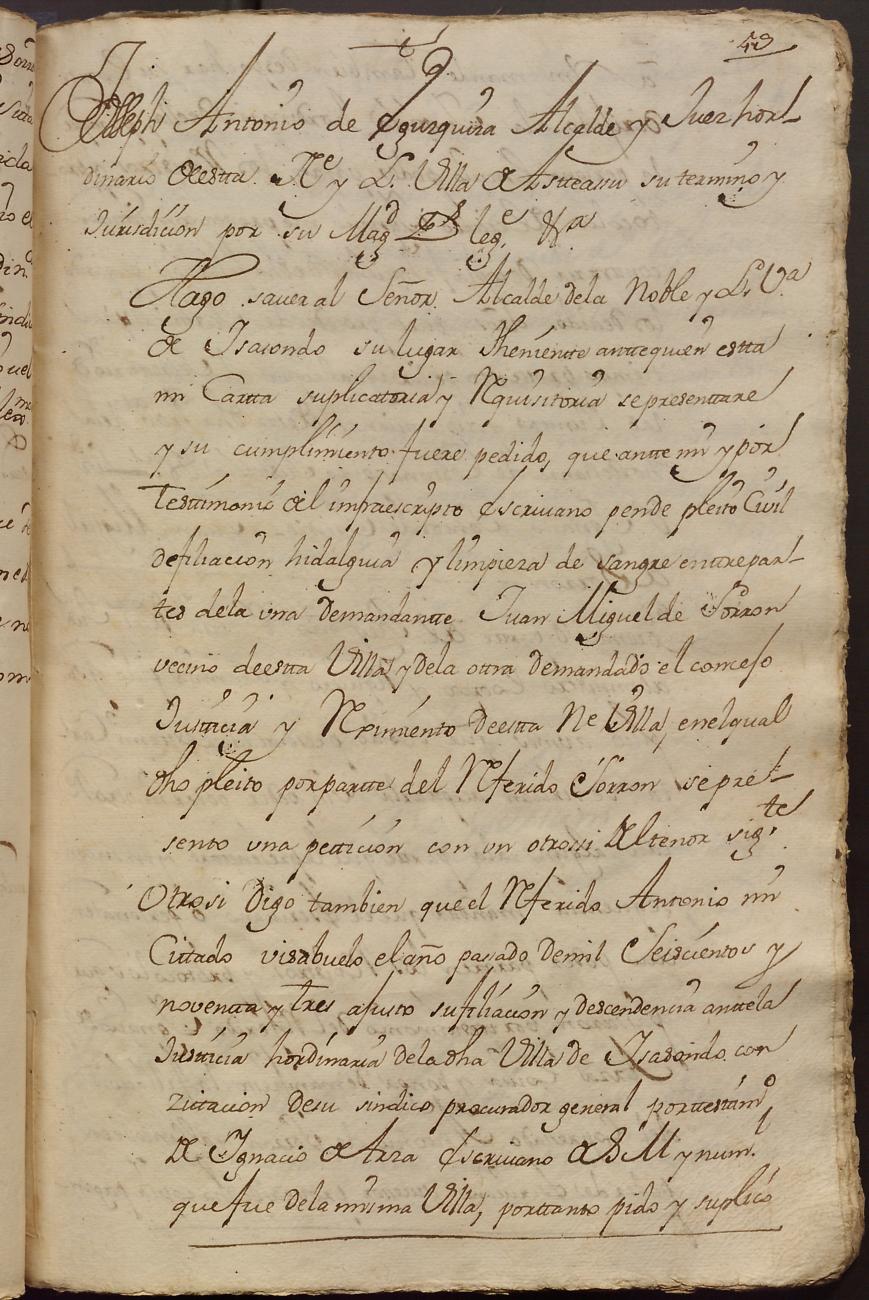 43
Joseph Antonio de Egurquiza Alcalde y Juez hor-
dinario de estta Ne y L. Villa de Astteasu su termino y
Jurisdicion por su Magd Ds lege &a
Hago saver al Señor Alcalde de la Noble y L. Va
de Isasondo su lugar Theniente antte quien estta
mi Cartta suplicatoria y Rquisitoria se presenttare
y su cumplimiento fuere pedido, que antte mi y por
Testtimonio del infraescripto Escrivano pende pleito Civil
de filiacion hidalguia y limpieza de sangre entre par-
tes de la una Demandantte Juan Miguel de Sorron
vecino de estta Villa y de la otra Demandado el concejo
Justticia y Rximiento de estta Ne Villa, en el qual
dho pleito por partte del Rferido Sorron se pre-
sento una petticion con un otrossi del tenor sigte
Otrosi Digo tambien que el Rferido Antonio mi
Cittado visabuelo el año pasado de mil Seiscientos y
noventta y tres ajusto su filiacion y descendencia antte la
Justticia hordinaria de la dha Villa de Isasondo con
zittacion de su sindico procurador general por testtimo
de Ignacio de Arza Escrivano de S M y numl
que fue de la misma Villa, por ttanto pido y suplico